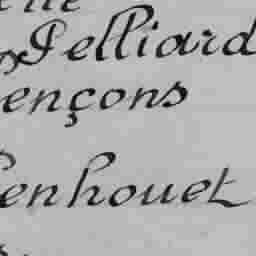 Pelliard
ençons
Penhouet